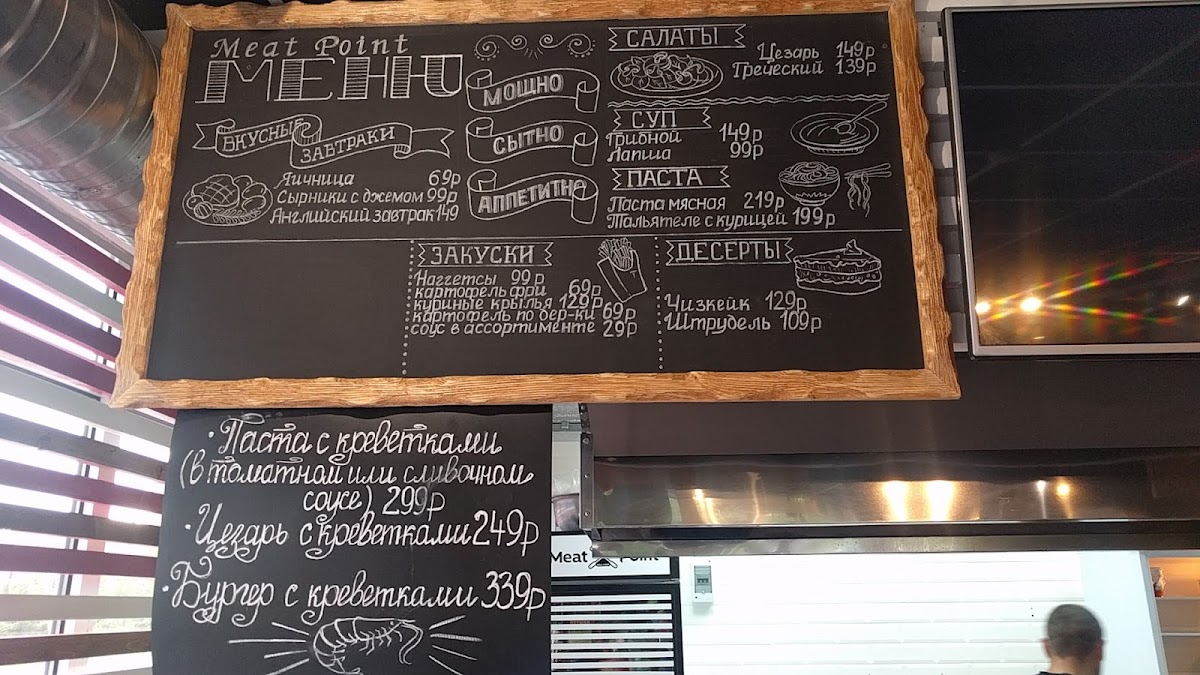 Meat Point
МЕНЮ
ВКУСНЫЕ
ЗАВТРАКИ
Яичница 69р
Сырники с джемом 99р
Английский завтрак 149
МОЩНО
СЫТНО
АППЕТИТНО
САЛАТЫ
Цезарь 149р
Греческий 139р
СУП
Грибной 149р
Лапша 99р
ПАСТА
Паста мясная 219р
Тальятеле с курицей 199р
ЗАКУСКИ
Наггетсы 99р
картофель фри 69р
куриные крылья 129р
картофель по бер-ки 69р
соус в ассортименте 29р
ДЕСЕРТЫ
Чизкейк 129р
Штрудель 109р
·Паста с креветками
(в томатной или сливочном
соусе) 299р
·Цезарь с креветками 249р
·Бургер с креветками 339р
Meat Point